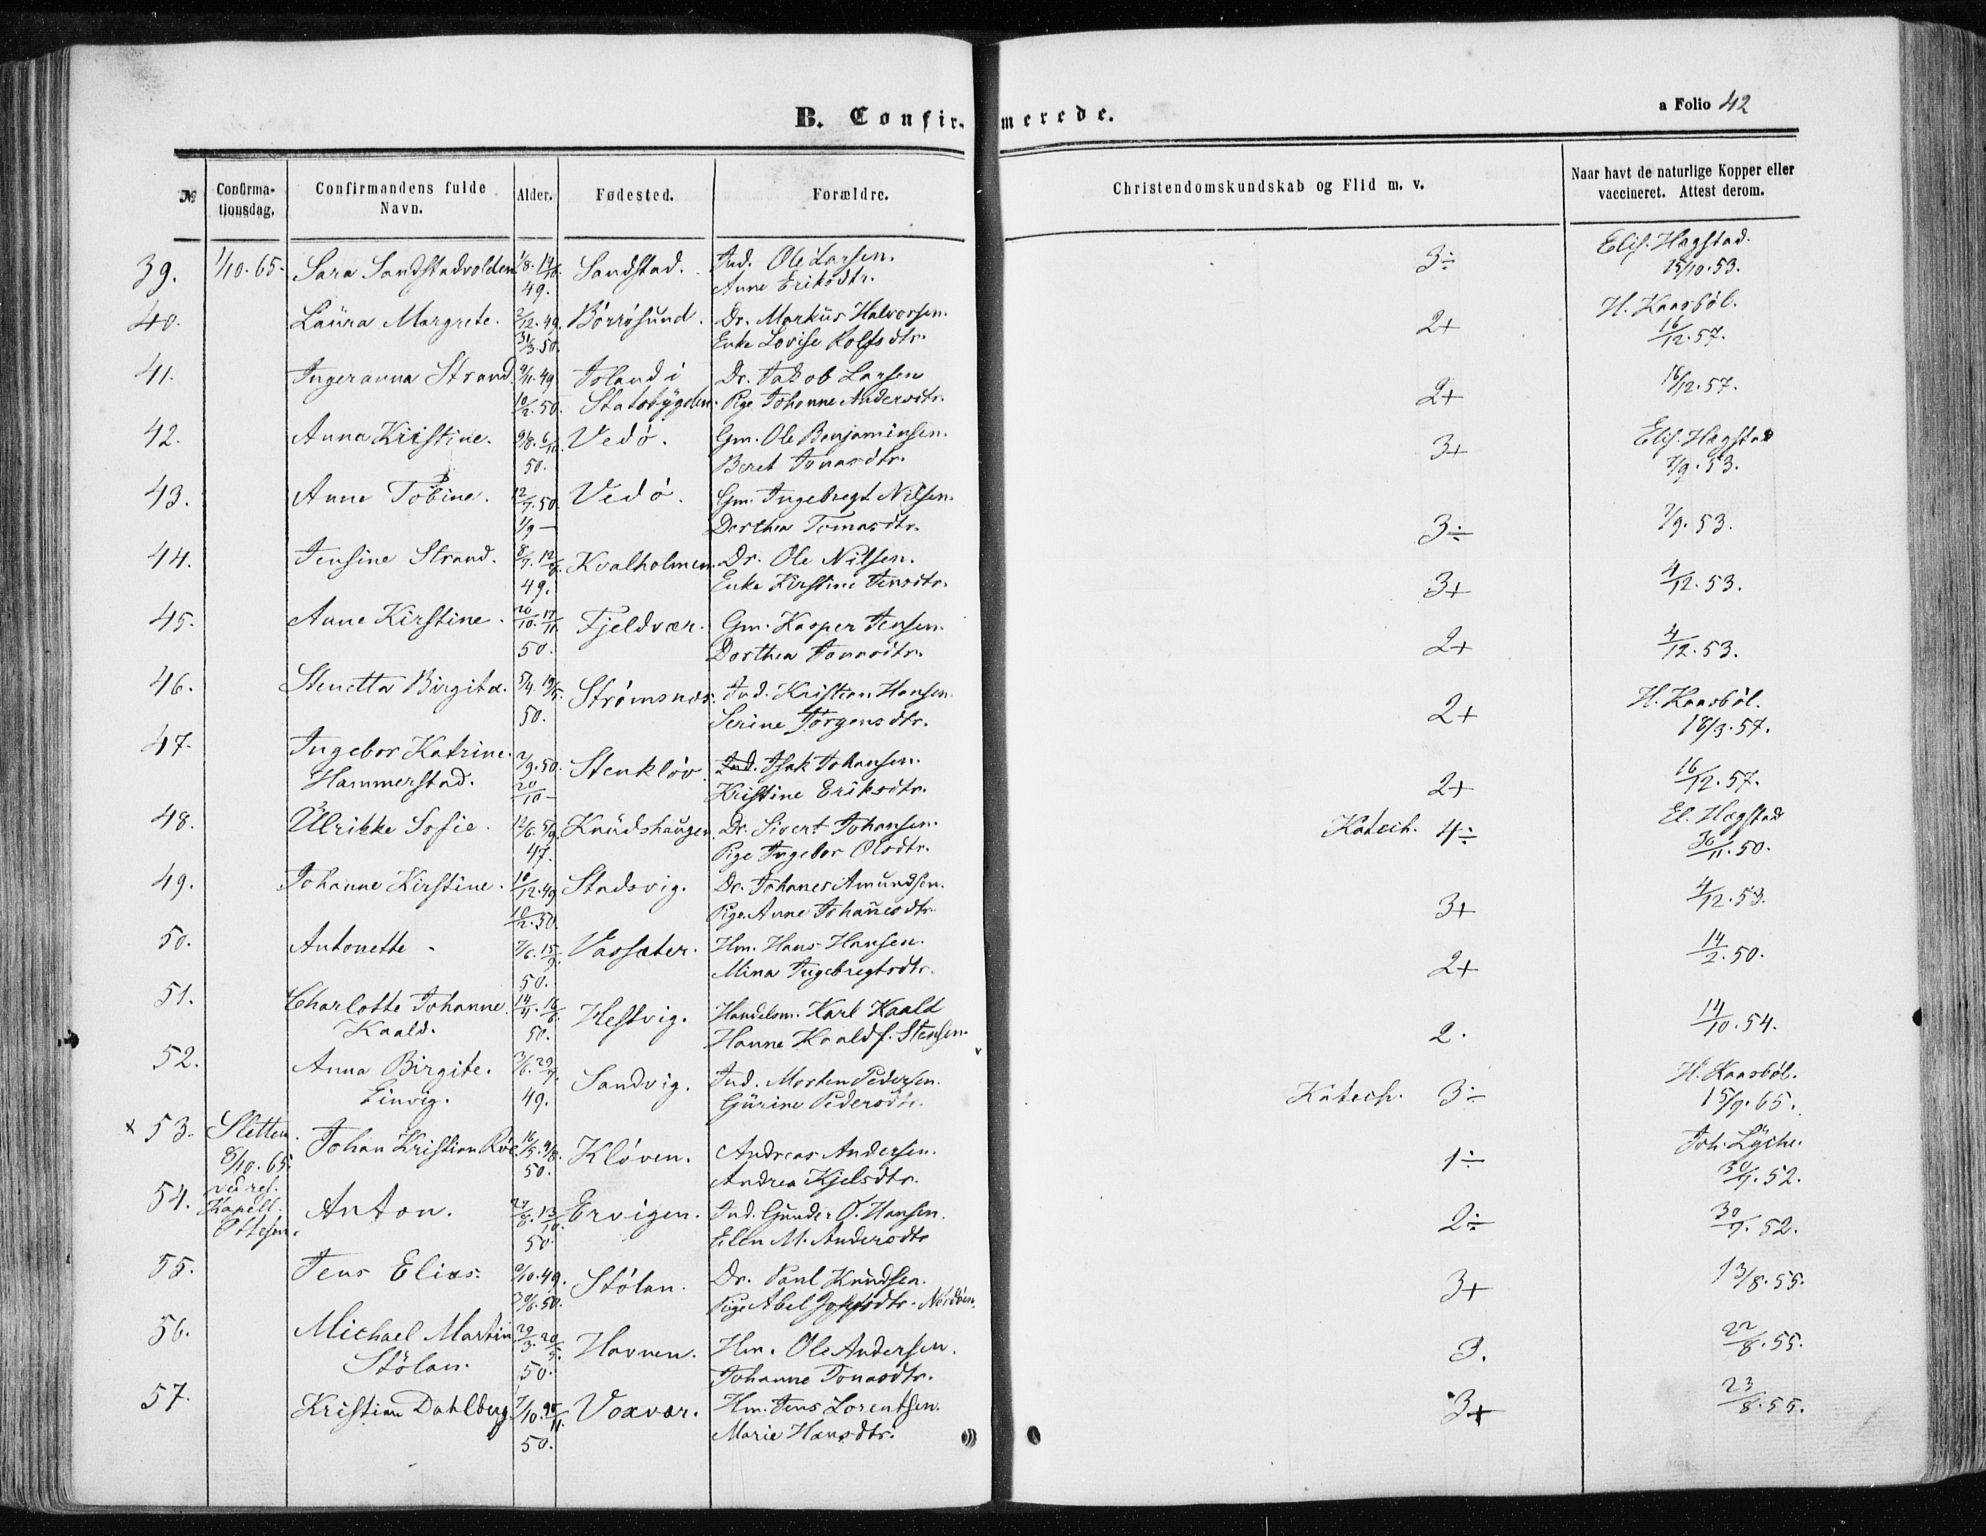 B. Confirmerede.
a Folio 42
№ Confirmationsdag. Confirmandens fulde Navn. Alder. Fødested. Forældre. Christendomskundskab og Flid m. v. Naar havt de naturlige Kopper eller vaccineret. Attest derom.
39. 1/10.65. Sara Sandstadvolden 1/8. 14/10 Sandstad. Ind. Ole Larsen. 3÷ Elis. Hagstad.
49. Anne Eriksdtr. 15/10.53.
40. Laura Margrete. 2/12.49. Börrösund. Dr. Markus Halvorsen. 2+ H. Kaasböl.
31/3.50. Enke Lovise Rolfsdtr. 16/12.57.
41. Ingeranna Strand. 9/11.49 Island i Dr. Jakob Larsen 2+ 16/12.57.
10/2.50. Statsbygden. Pige Johanne Andersdtr.
42. Anna Kristine. 9/8. 6/10. Vedö. Gm. Ole Benjaminsen. 3+ Elis. Hagstad
50. Beret Jonasdtr. 7/9.53.
43. Anne Tobine. 12/7.50. Vedö. Gm. Ingebregt Nilsen. 3÷ 7/9.53.
1/9 — Dorthea Tomasdtr.
44. Jensine Strand. 8/7. 12/8 Kvalholmen. Dr. Ole Nilsen. 3+ 4/12.53.
49. Enke Kirstine Jensdtr.
45. Anne Kirstine. 20/10. 17/11. Fjeldvær. Gm. Kasper Jensen. 2+ 4/12.53.
50. Dorthea Jonasdtr.
46. Stenetta Birgita. 5/4. 19/5. Strømsnes. Ind. Kristian Hansen. 2+ H. Kaasböl.
50. Serine Jörgensdtr. 18/3.57.
47. Ingebor Katrine 2/9.50. Stenklöv. Ind. Isak Johansen. 2+ 16/12.57.
Hammerstad. 20/10 — Kristine Eriksdtr.
48. Ulrikke Sofie. 12/6. 5/9. Knudshaugen Dr. Sivert Johansen. Katech. 4÷ El. Hagstad
47. Pige Ingebor Olsdtr. 30/11.50.
49. Johanne Kirstine. 10/12.49 Stadsvig. Dr. Johanes Amundsen. 3+ 4/12.53.
10/2.50. Pige Anne Johanesdtr.
50. Antonette 7/6. 15/9. Vassæter. Hm. Hans Hansen. 2+ 14/2.50.
50. Mina Ingebregtsdtr.
51. Charlotte Johanne 14/4. 16/6 Hestvig. Handelsm. Karl Kaald 2. 14/10.54.
Kaald. 50. Hanne Kaald f. Stensen.
52. Anna Birgite. 3/6. 29/7. Sandvig. Ind. Morten Pedersen. Katech. 3÷ H. Kaasböl.
Linvig. 49. Gurine Pedersdtr. 15/9.65.
x 53. Sletten. Johan Kristian Roe 16/5. 4/8. Klöven. Andreas Andersen. 1÷ Joh. Lyche.
8/10.65. 50. Andrea Kjelsdtr. 30/7.52.
54. ved res. Kapell. Anton. 27/8. 13/10. Ervigen. Ind. Gunder O. Hansen. 2÷ 30/7.52.
Ottesen. 50. Elen M. Andersdtr
55. Jens Elias. 9/10.49. Stölan. Dr. Paul Knudsen. 3+ 13/8.55.
30/6.50. Pige Abel Josefsdtr. Nordöen.
56. Michael Martin 29/3. 20/5. Havnen. Hm. Ole Andersen. 3. 22/8.55.
Stölan. 50. Johanne Jonasdtr.
57. Kristian Dahlberg 7/10. 20/11. Voxvær. Hm. Jens Lorentsen. 3+ 23/8.55.
50. Marie Hansdtr.